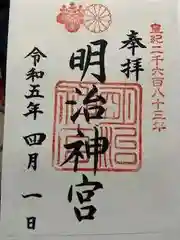 皇紀二千六百八十三年
奉拝
明治神宮
令和五年四月一日